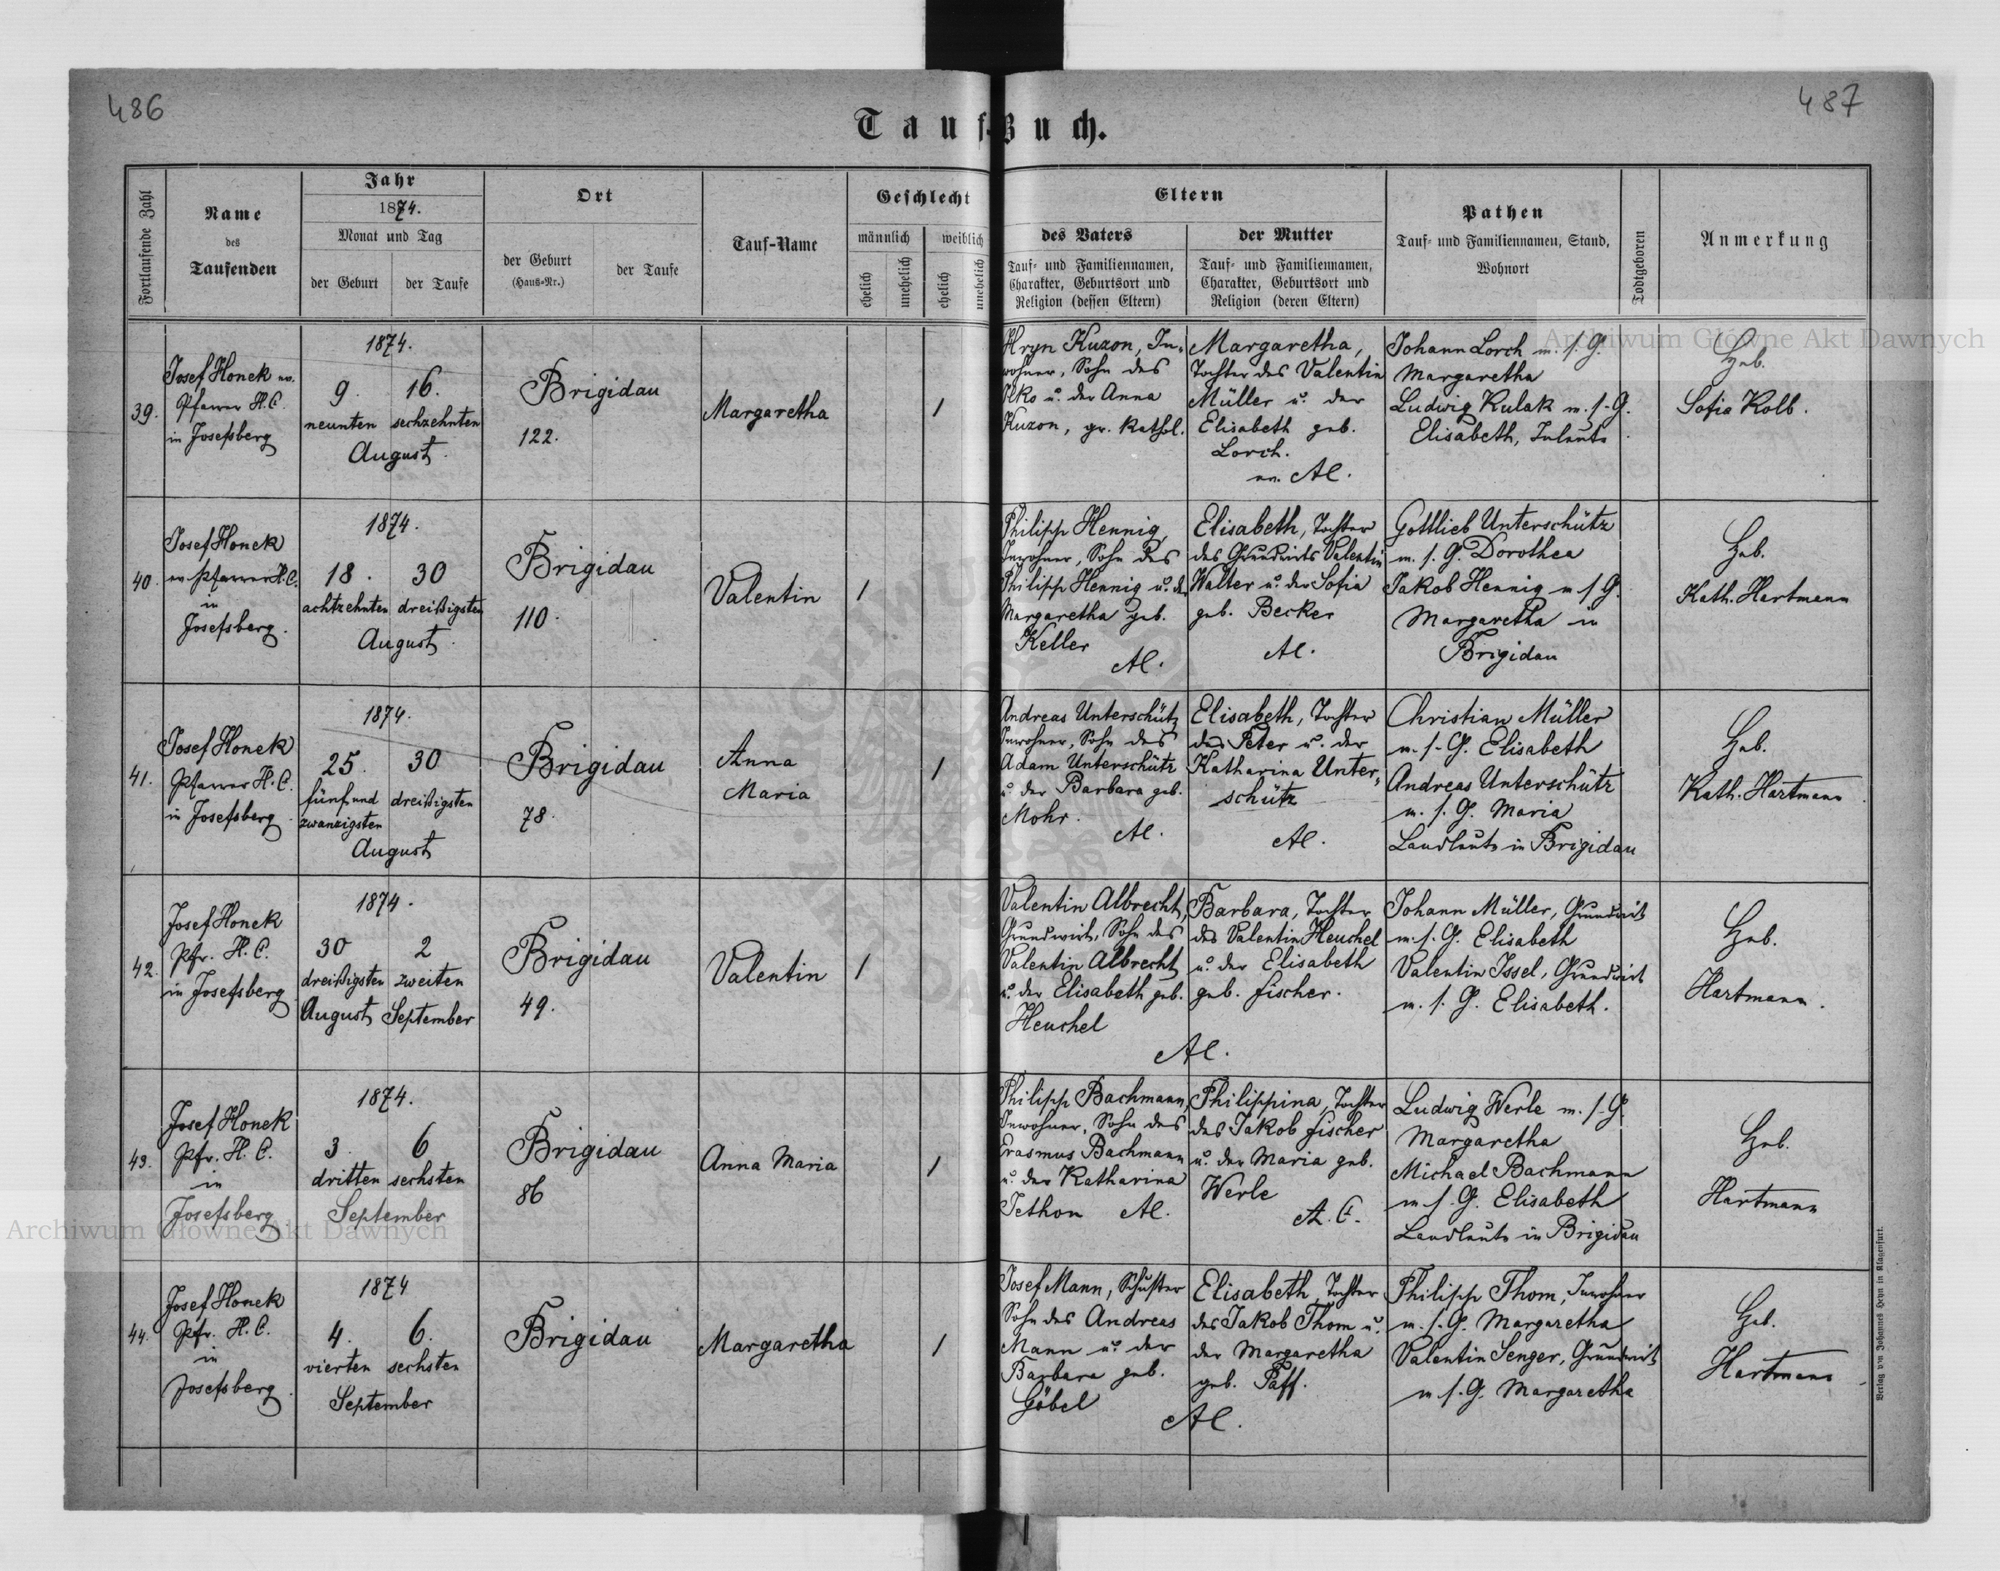 486
487
Tauf-Buch.
Fortlaufende Zahl
Name
des
Taufenden
Jahr
1874.
Monat und Tag
der Geburt
der Taufe
Ort
der Geburt
(Haus-Nr.)
der Taufe
Tauf-Name
Geschlecht
männlich
weiblich
ehelich
unehelich
ehelich
unehelich
Eltern
des Vaters
Tauf- und Familiennamen,
Charakter, Geburtsort und
Religion (dessen Eltern)
der Mutter
Tauf- und Familiennamen,
Charakter, Geburtsort und
Religion (deren Eltern)
Pathen
Tauf- und Familiennamen, Stand,
Wohnort
Todtgeboren
Anmerkung
39.
Josef Honek ev.
Pfarrer H.C.
in Josefsberg
1874.
9. 16.
neunten sechzehnten
August
Brigidau
122.
Margaretha
1
Hryn Kuzon, In-
wohner, Sohn des
Ilko u. der Anna
Kuzon, gr. kathol.
Margaretha,
Tochter des Valentin
Müller u. der
Elisabeth geb.
Lorch.
ev. AC.
Johann Lorch m. s. G.
Margaretha
Ludwig Kulak m. s. G.
Elisabeth, Inleute
Heb.
Sofia Kolb.
40.
Josef Honek
ev. Pfarrer H.C.
in
Josefsberg.
1874.
18. 30
achtzehnten dreißigsten
August
Brigidau
110.
Valentin
1
Philipp Hennig,
Inwohner, Sohn des
Philipp Hennig u. d.
Margaretha geb.
Keller
AC.
Elisabeth, Tochter
des Grundwirts Valentin
Walter u. der Sofia
geb. Becker
AC.
Gottlieb Unterschütz
m. s. G. Dorothea
Jakob Hennig m s G.
Margaretha in
Brigidau
Heb.
Kath. Hartmann
41.
Josef Honek
Pfarrer H.C.
in Josefsberg
1874.
25. 30
fünfund dreißigsten
zwanzigsten
August
Brigidau
78.
Anna
Maria
1
Andreas Unterschütz
Inwohner, Sohn des
Adam Unterschütz
u. der Barbara geb.
Mohr.
AC.
Elisabeth, Tochter
des Peter u. der
Katharina Unter-
schütz
AC.
Christian Müller
m. s. G. Elisabeth
Andreas Unterschütz
m. s. G. Maria
Landleute in Brigidau
Heb.
Kath. Hartmann
42.
Josef Honek
Pfr. H.C.
in Josefsberg
1874.
30 2
dreißigsten zweiten
August September
Brigidau
49.
Valentin
1
Valentin Albrecht,
Grundwirt, Sohn des
Valentin Albrecht
u. der Elisabeth geb.
Heuchel
Barbara, Tochter
des Valentin Heuchel
u. der Elisabeth
geb. Fischer.
AC.
Johann Müller, Grundwirt
m. s. G. Elisabeth
Valentin Issel, Grundwirt
m. s. G. Elisabeth.
Heb.
Hartmann.
43.
Josef Honek
Pfr. H.C.
in
Josefsberg
1874.
3. 6
dritten sechsten
September
Brigidau
86
Anna Maria
1
Philipp Bachmann,
Inwohner, Sohn des
Erasmus Bachmann
u. der Katharina
Jethon AC.
Philippina, Tochter
des Jakob Fischer
u. der Maria geb.
Werle
A.C.
Ludwig Werle m. s. G.
Margaretha
Michael Bachmann
m s. G. Elisabeth
Landleute in Brigidau
Heb.
Hartmann
44.
Josef Honek
Pfr. H.C.
in
Josefsberg.
1874
4. 6.
vierten sechsten
September
Brigidau
Margaretha
1
Josef Mann, Schuster
Sohn des Andreas
Mann u. der
Barbara geb.
Göbel
Elisabeth, Tochter
des Jakob Thom u.
der Margaretha
geb. Paff.
AC.
Philipp Thom, Inwohner
m. s. G. Margaretha
Valentin Senger, Grundwirt
m s. G. Margaretha
Heb.
Hartmann
Verlag von Johannes Heyn in Klagenfurt.
Archiwum Główne Akt Dawnych
Archiwum Główne Akt Dawnych